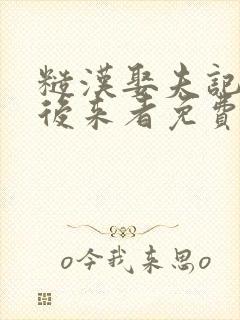 糙漢娶夫記
後来者免費
o今我来思o